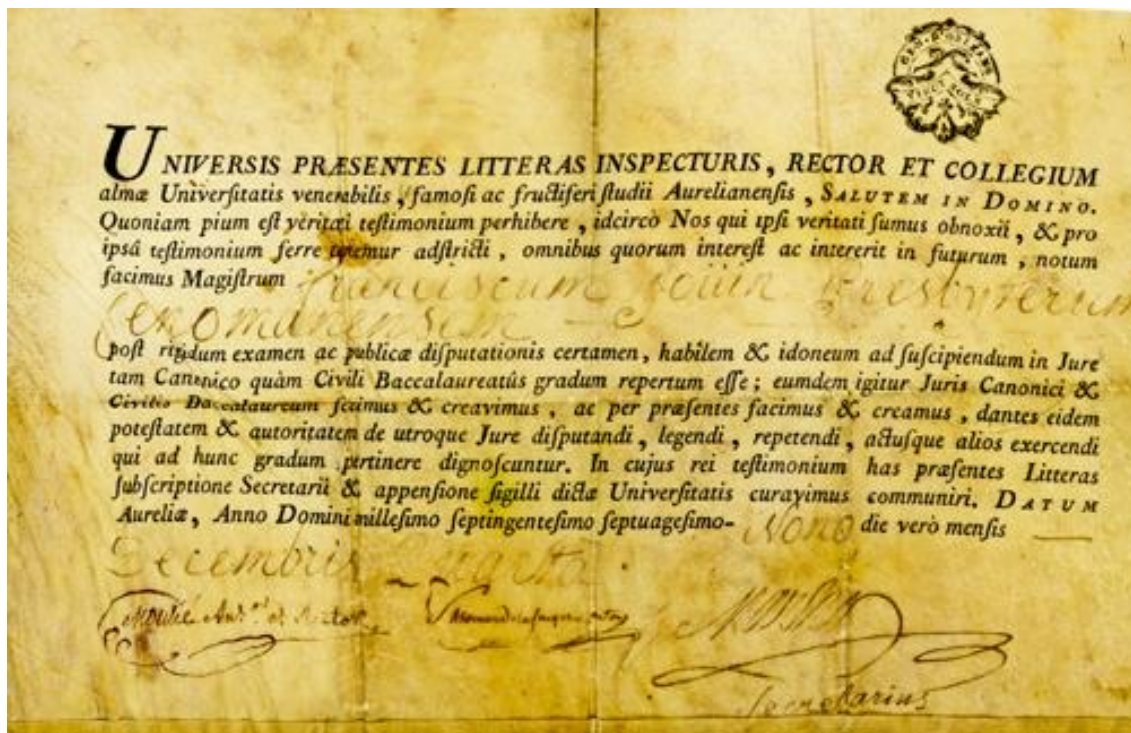 UNIVERSIS PRÆSENTES LITTERAS INSPECTURIS, RECTOR ET COLLEGIUM
almæ Univerſitatis venerabilis, famoſi ac fructiferi ſtudii Aurelianenſis, SALUTEM IN DOMINO.
Quoniam pium eſt veritati teſtimonium perhibere, idcircò Nos qui ipſi veritati ſumus obnoxii, & pro
ipsâ teſtimonium ferre tenemur adſtricti, omnibus quorum intereſt ac intererit in futurum, notum
facimus Magiſtrum Franciscum Presbyterum
Cenomanensem
poſt rigidum examen ac publicæ diſputationis certamen, habilem & idoneum ad ſuſcipiendum in Jure
tam Canonico quàm Civili Baccalaureatûs gradum repertum eſſe; eumdem igitur Juris Canonici &
Civilis Baccalaureum fecimus & creavimus, ac per præſentes facimus & creamus, dantes eidem
poteſtatem & autoritatem de utroque Jure diſputandi, legendi, repetendi, actuſque alios exercendi
qui ad hunc gradum pertinere dignoſcuntur. In cujus rei teſtimonium has præſentes Litteras
ſubſcriptione Secretarii & appenſione ſigilli dictæ Univerſitatis curavimus communiri. DATUM
Aureliæ, Anno Domini milleſimo ſeptingenteſimo ſeptuageſimo- Nono die verò menſis
Decembris quarta
et Rector
Secretarius